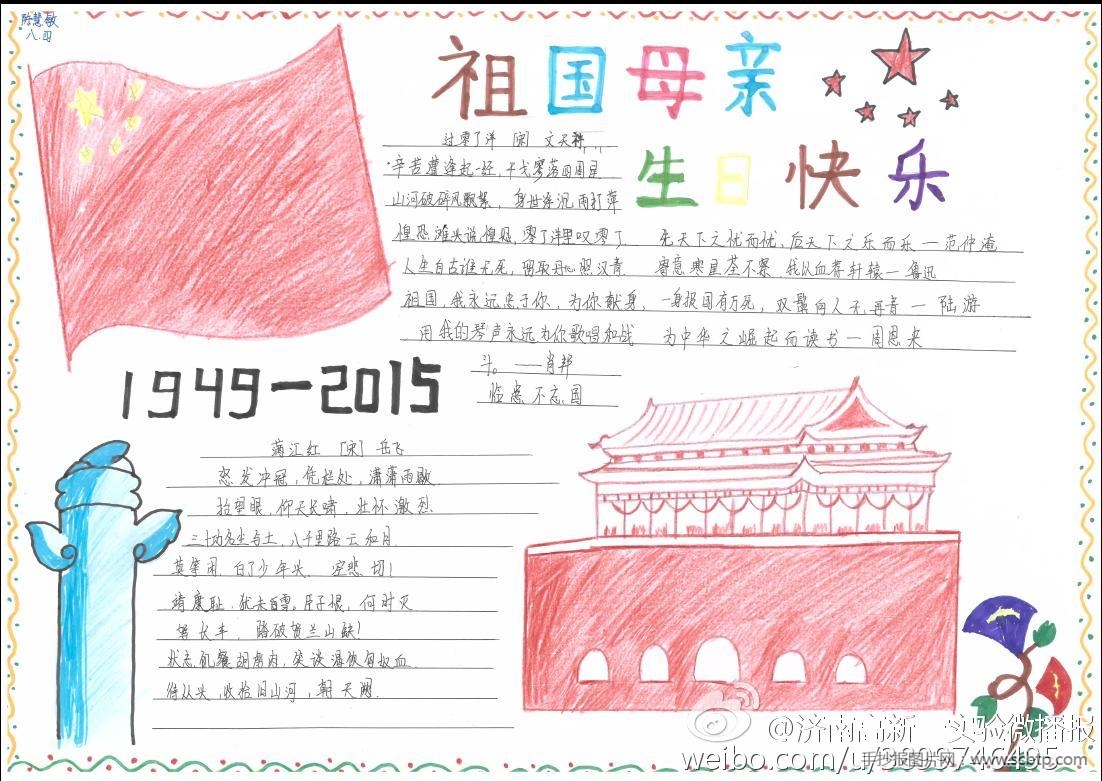 陈慧敏
八.四
祖国母亲
生日快乐
过零丁洋 [宋] 文天祥
辛苦遭逢起一经,干戈寥落四周星
山河破碎风飘絮,身世浮沉雨打萍
惶恐滩头说惶恐,零丁洋里叹零丁
人生自古谁无死,留取丹心照汉青
祖国,我永远忠于你,为你献身,
用我的琴声永远为你歌唱和战
斗。——肖邦
临患不忘国
先天下之忧而忧,后天下之乐而乐—范仲淹
寄意寒星荃不察,我以血荐轩辕—鲁迅
一身报国有万死,双鬓向人无再青—陆游
为中华之崛起而读书—周恩来
1949-2015
满江红 [宋] 岳飞
怒发冲冠,凭栏处,潇潇雨歇
抬望眼,仰天长啸,壮怀激烈.
三十功名尘与土,八千里路云和月.
莫等闲,白了少年头,空悲切!
靖康耻.犹未雪.臣子恨,何时灭
驾长车,踏破贺兰山缺!
壮志饥餐胡虏肉,笑谈渴饮匈奴血.
待从头,收拾旧山河,朝天阙.
@济南高新 实验微播报
手抄报图片网—www.scbtp.com